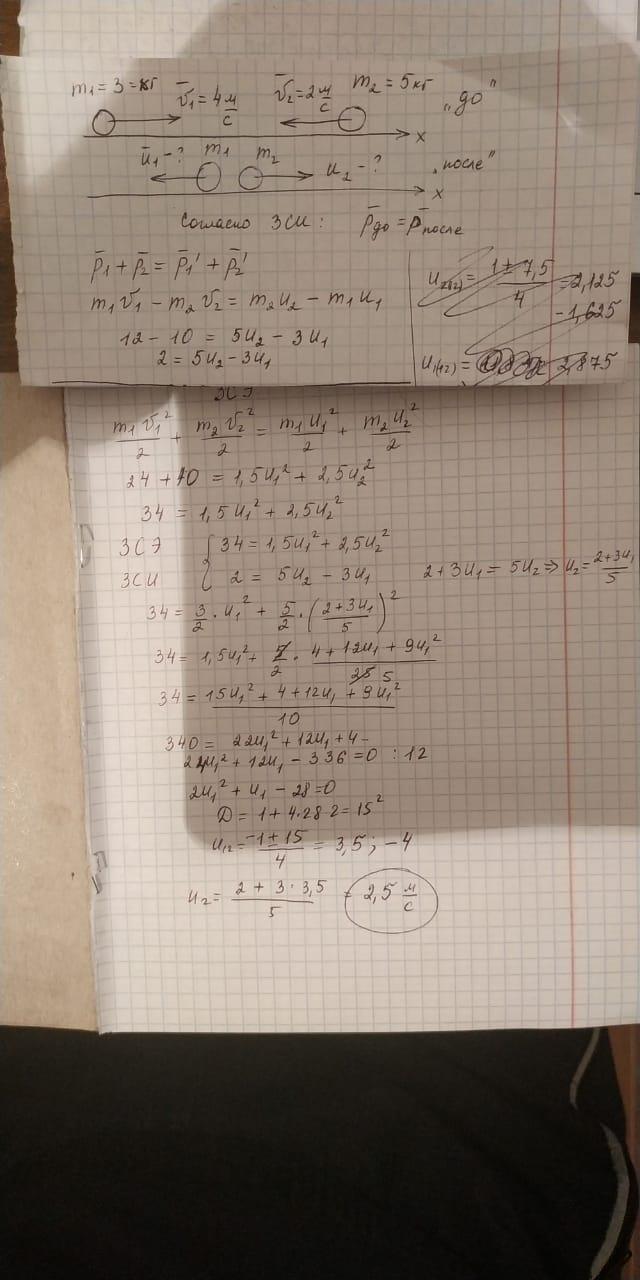 m₁ = 3 = кг v̄₁ = 4 м/с v̄₂ = 2 м/с m₂ = 5 кг „до"
x
ū₁ - ? m₁ m₂ u₂ - ? „после"
x
Согласно ЗСИ: p̄до = p̄после
p̄₁ + p̄₂ = p̄₁' + p̄₂'
m₁v̄₁ - m₂v̄₂ = m₂u₂ - m₁u₁
12 - 10 = 5u₂ - 3u₁
2 = 5u₂ - 3u₁
= (1 ± 7,5)/4 = 2,125
-1,625
2,875
ЗСЭ
m₁v₁²/2 + m₂v₂²/2 = m₁u₁²/2 + m₂u₂²/2
24 + 10 = 1,5u₁² + 2,5u₂²
34 = 1,5u₁² + 2,5u₂²
ЗСЭ { 34 = 1,5u₁² + 2,5u₂²
ЗСИ { 2 = 5u₂ - 3u₁ 2 + 3u₁ = 5u₂ ⇒ u₂ = (2+3u₁)/5
34 = 3/2 · u₁² + 5/2 · ((2+3u₁)/5)²
34 = 1,5u₁² + 5/2 · (4 + 12u₁ + 9u₁²)/25 5
34 = (15u₁² + 4 + 12u₁ + 9u₁²)/10
340 = 22u₁² + 12u₁ + 4 -
24u₁² + 12u₁ - 336 = 0 : 12
2u₁² + u₁ - 28 = 0
D = 1 + 4·28·2 = 15²
u₁₂ = (-1 ± 15)/4 = 3,5 ; -4
u₂ = (2 + 3 · 3,5)/5 = 2,5 м/с